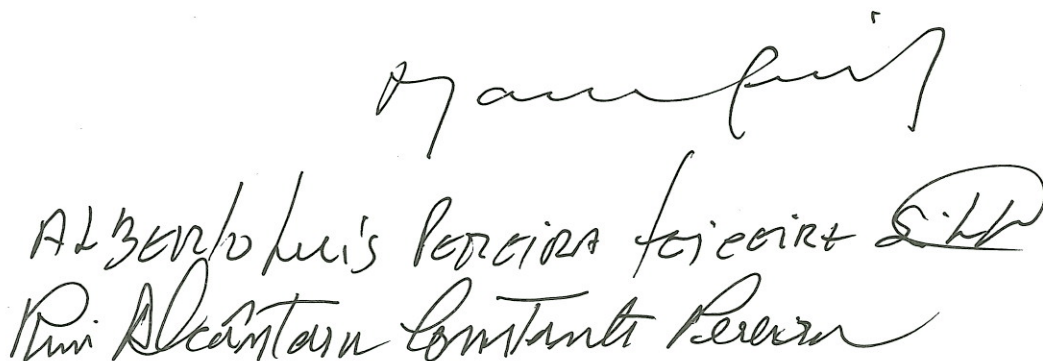 ALBERTO Luís PEREIRA teixeira Silva
Rui Alcântara Constante Pereira